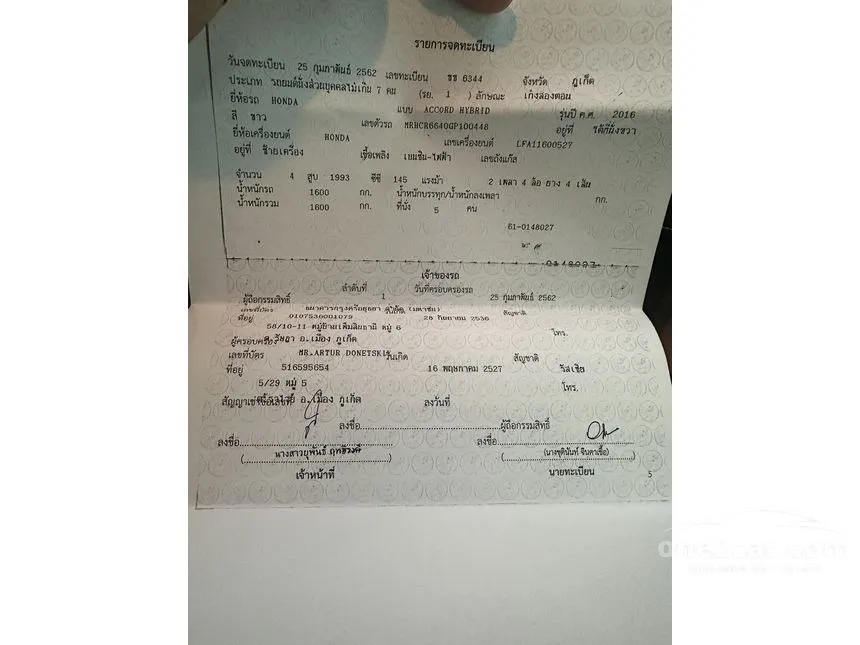 รายการจดทะเบียน
วันจดทะเบียน 25 กุมภาพันธ์ 2562 เลขทะเบียน ขข 6344 จังหวัด ภูเก็ต
ประเภท รถยนต์นั่งส่วนบุคคลไม่เกิน 7 คน (รย. 1 ) ลักษณะ เก๋งสองตอน
ยี่ห้อรถ HONDA แบบ ACCORD HYBRID รุ่นปี ค.ศ. 2016
สี ขาว เลขตัวรถ MRHCR6640GP100448 อยู่ที่ ใต้ที่นั่งขวา
ยี่ห้อเครื่องยนต์ HONDA เลขเครื่องยนต์ LFA11600527
อยู่ที่ ซ้ายเครื่อง เชื้อเพลิง เบนซิน-ไฟฟ้า เลขถังแก๊ส
จำนวน 4 สูบ 1993 ซีซี 145 แรงม้า 2 เพลา 4 ล้อ ยาง 4 เส้น
น้ำหนักรถ 1600 กก. น้ำหนักบรรทุก/น้ำหนักลงเพลา กก.
น้ำหนักรวม 1600 กก. ที่นั่ง 5 คน
61-0148027
0148027
เจ้าของรถ
ลำดับที่ 1 วันที่ครอบครองรถ 25 กุมภาพันธ์ 2562
ผู้ถือกรรมสิทธิ์ ธนาคารกรุงศรีอยุธยา จำกัด (มหาชน)
เลขที่บัตร 0107536001079 28 กันยายน 2536 สัญชาติ
ที่อยู่ 58/10-11 หมู่บ้าน หมู่ 6
ต.รัษฎา อ.เมือง ภูเก็ต โทร.
ผู้ครอบครอง MR.ARTUR DONETSKI
เลขที่บัตร 516595654 วันเกิด 16 พฤษภาคม 2527 สัญชาติ รัสเซีย
ที่อยู่ 5/29 หมู่ 5 โทร.
อ.เมือง ภูเก็ต
สัญญาเช่าซื้อเลขที่ ลงวันที่
ลงชื่อ ผู้ถือกรรมสิทธิ์
ลงชื่อ ลงชื่อ
(นางสาวยุพันธ์ ) (นางชุตินันท์ จินดาเชื้อ)
เจ้าหน้าที่ นายทะเบียน
5
one2car.com